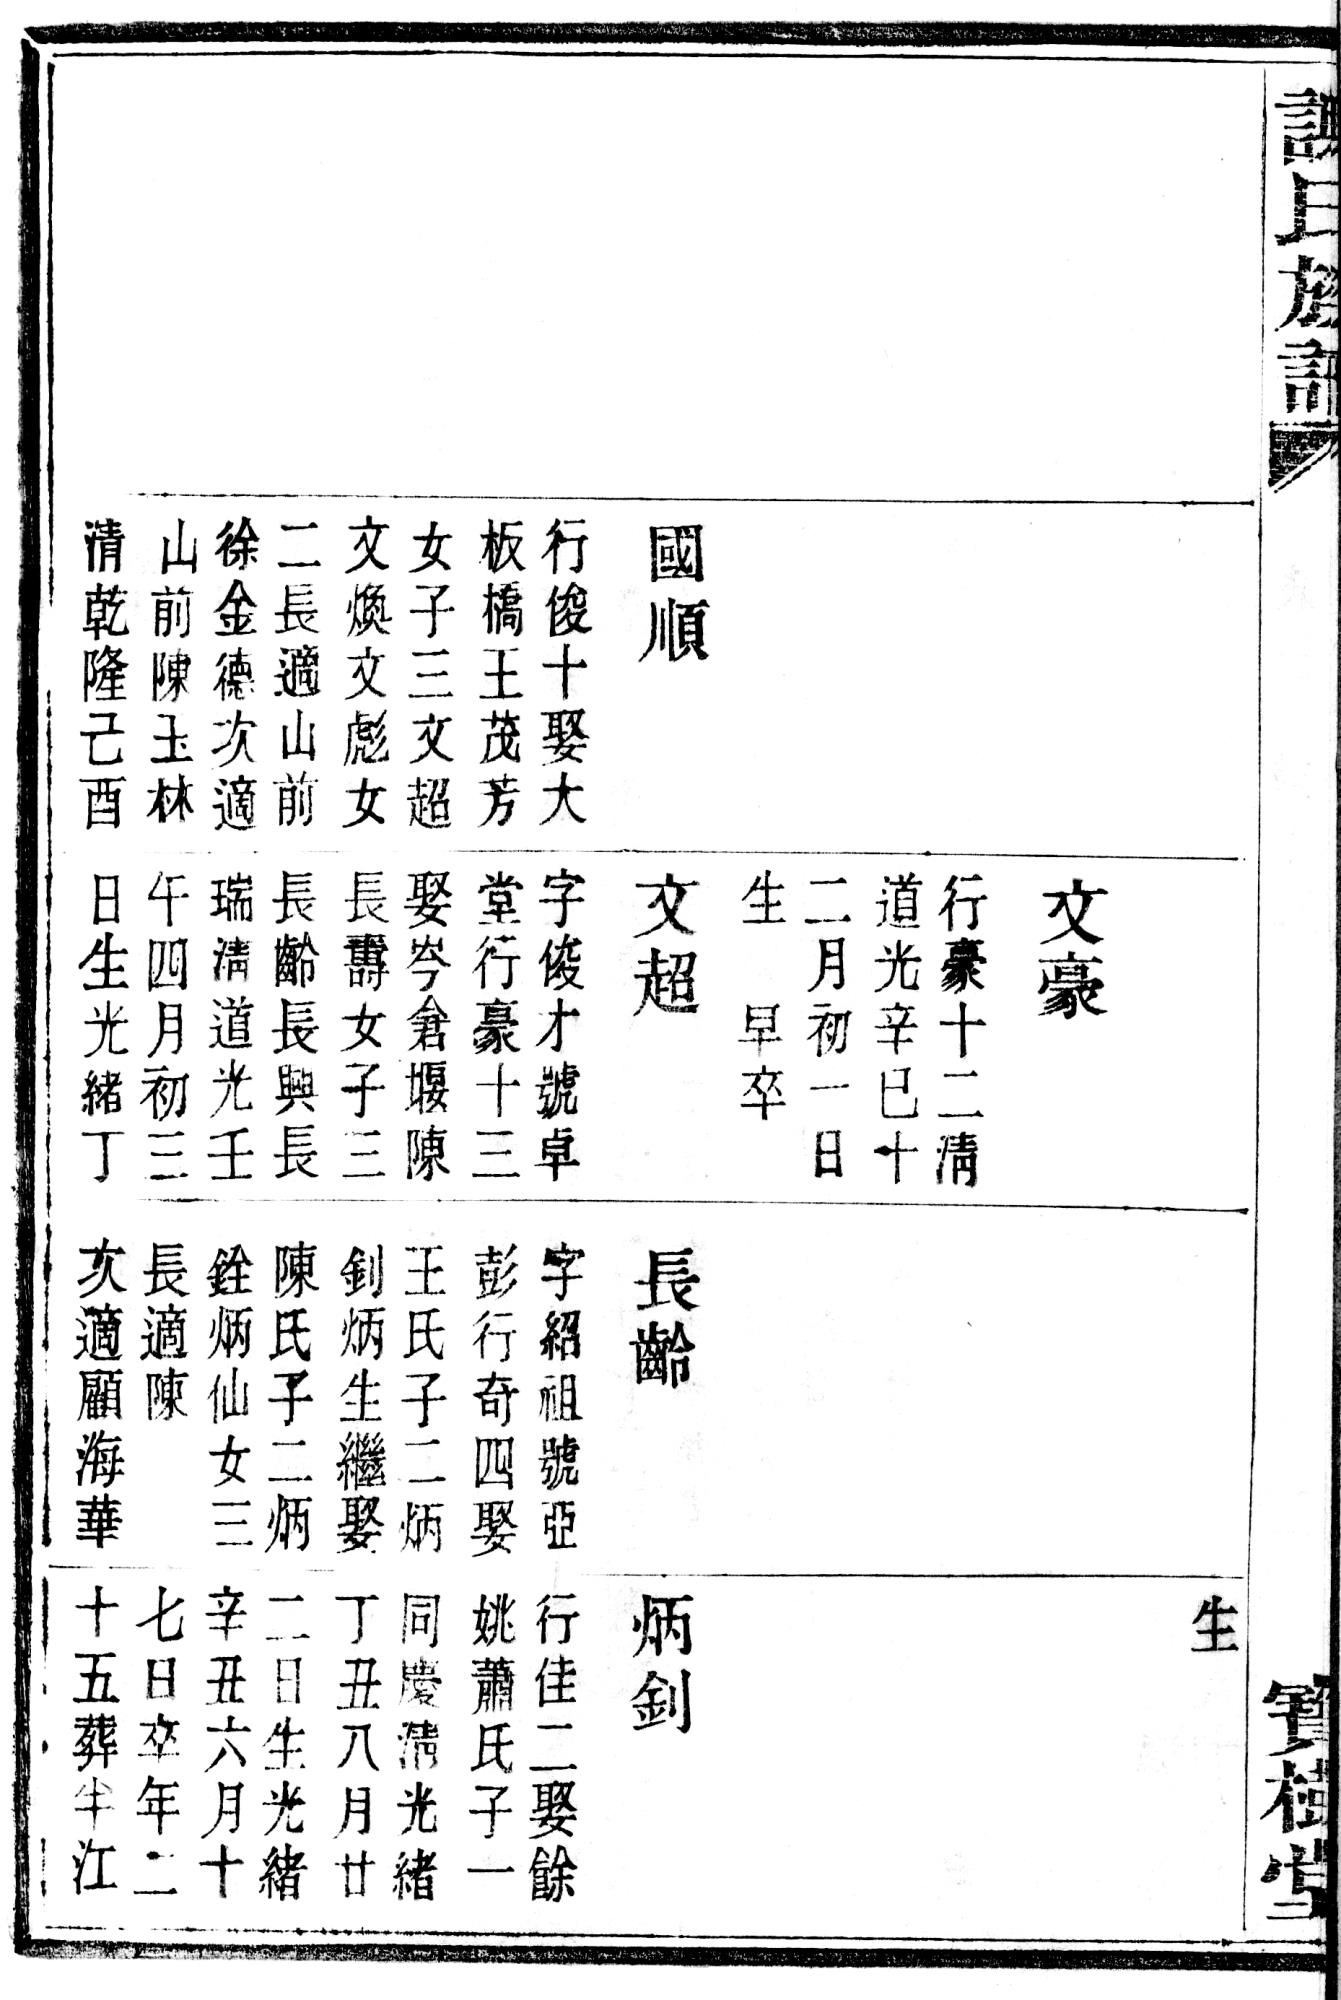 謝氏族譜
寶樹堂
國順
行俊十娶大
板橋王茂芳
女子三文超
文煥文彪女
二長適山前
徐金德次適
山前陳玉林
清乾隆己酉
文豪
行豪十二清
道光辛巳十
二月初一日
生 早卒
文超
字俊才號卓
堂行豪十三
娶岑倉堰陳
長壽女子三
長齡長興長
瑞清道光壬
午四月初三
日生光緒丁
長齡
字紹祖號亞
彭行奇四娶
王氏子二炳
釗炳生繼娶
陳氏子二炳
銓炳仙女三
長適陳
次適顧海華
生
炳釗
行佳二娶餘
姚蕭氏子一
同慶清光緒
丁丑八月廿
二日生光緒
辛丑六月十
七日卒年二
十五葬半江